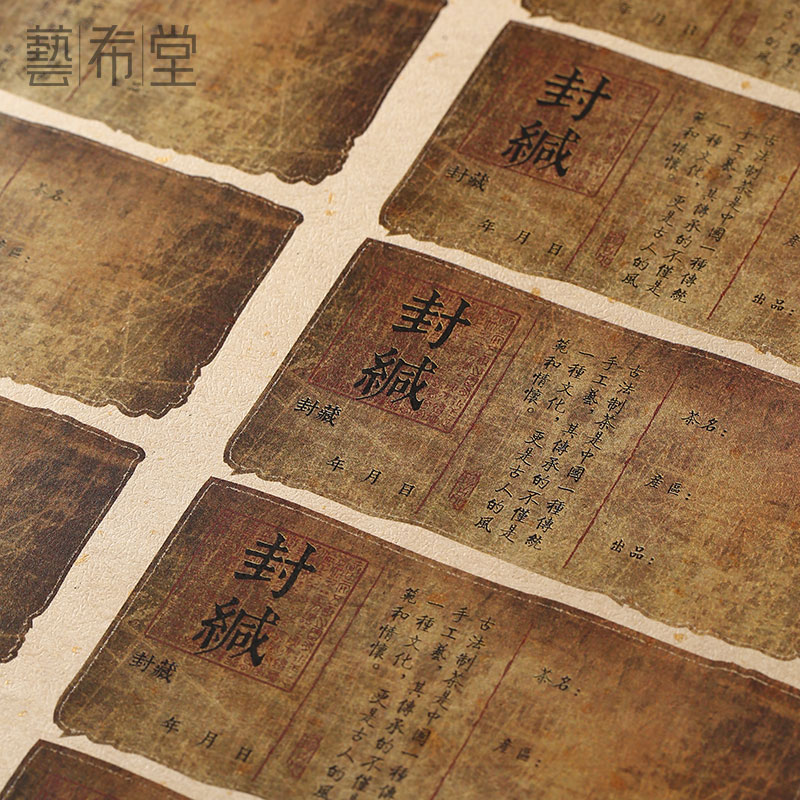 藝布堂
月 日
封緘
封藏
年 月 日
古法制茶是中國一種傳統
手工藝，其傳承的不僅是
一種文化，更是古人的風
範和情懷。
出品：
茶名：
產區：
封緘
封藏
年 月 日
古法制茶是中國一種傳統
手工藝，其傳承的不僅是
一種文化，更是古人的風
範和情懷。
茶名：
產區：
出品：
封緘
封藏
年 月 日
古法制茶是中國一種傳
手工藝，其傳承的不
一種文化，更是古人
範和情懷。
茶名：
產區：